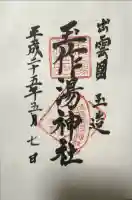 出雲國
玉造
玉作湯神社
平成二十五年五月七日